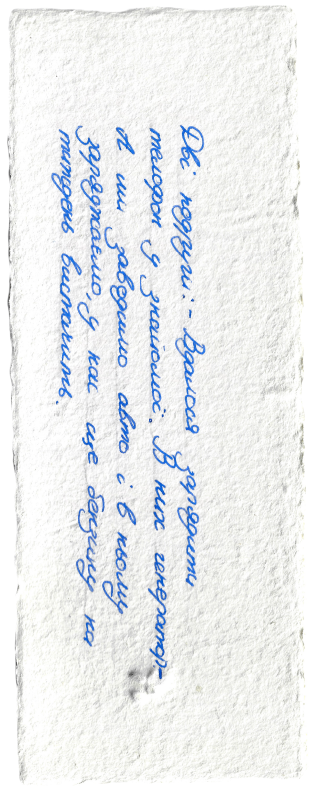 Дві подруги: - Вдалося зарядити
телефон у знайомої. В них генератор.-
А ми заведемо авто і в ньому
заряджаємо, у нас ще бензину на
тиждень вистачить.